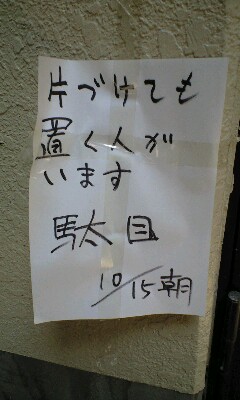 片づけても
置く人が
います
駄目
10/15朝